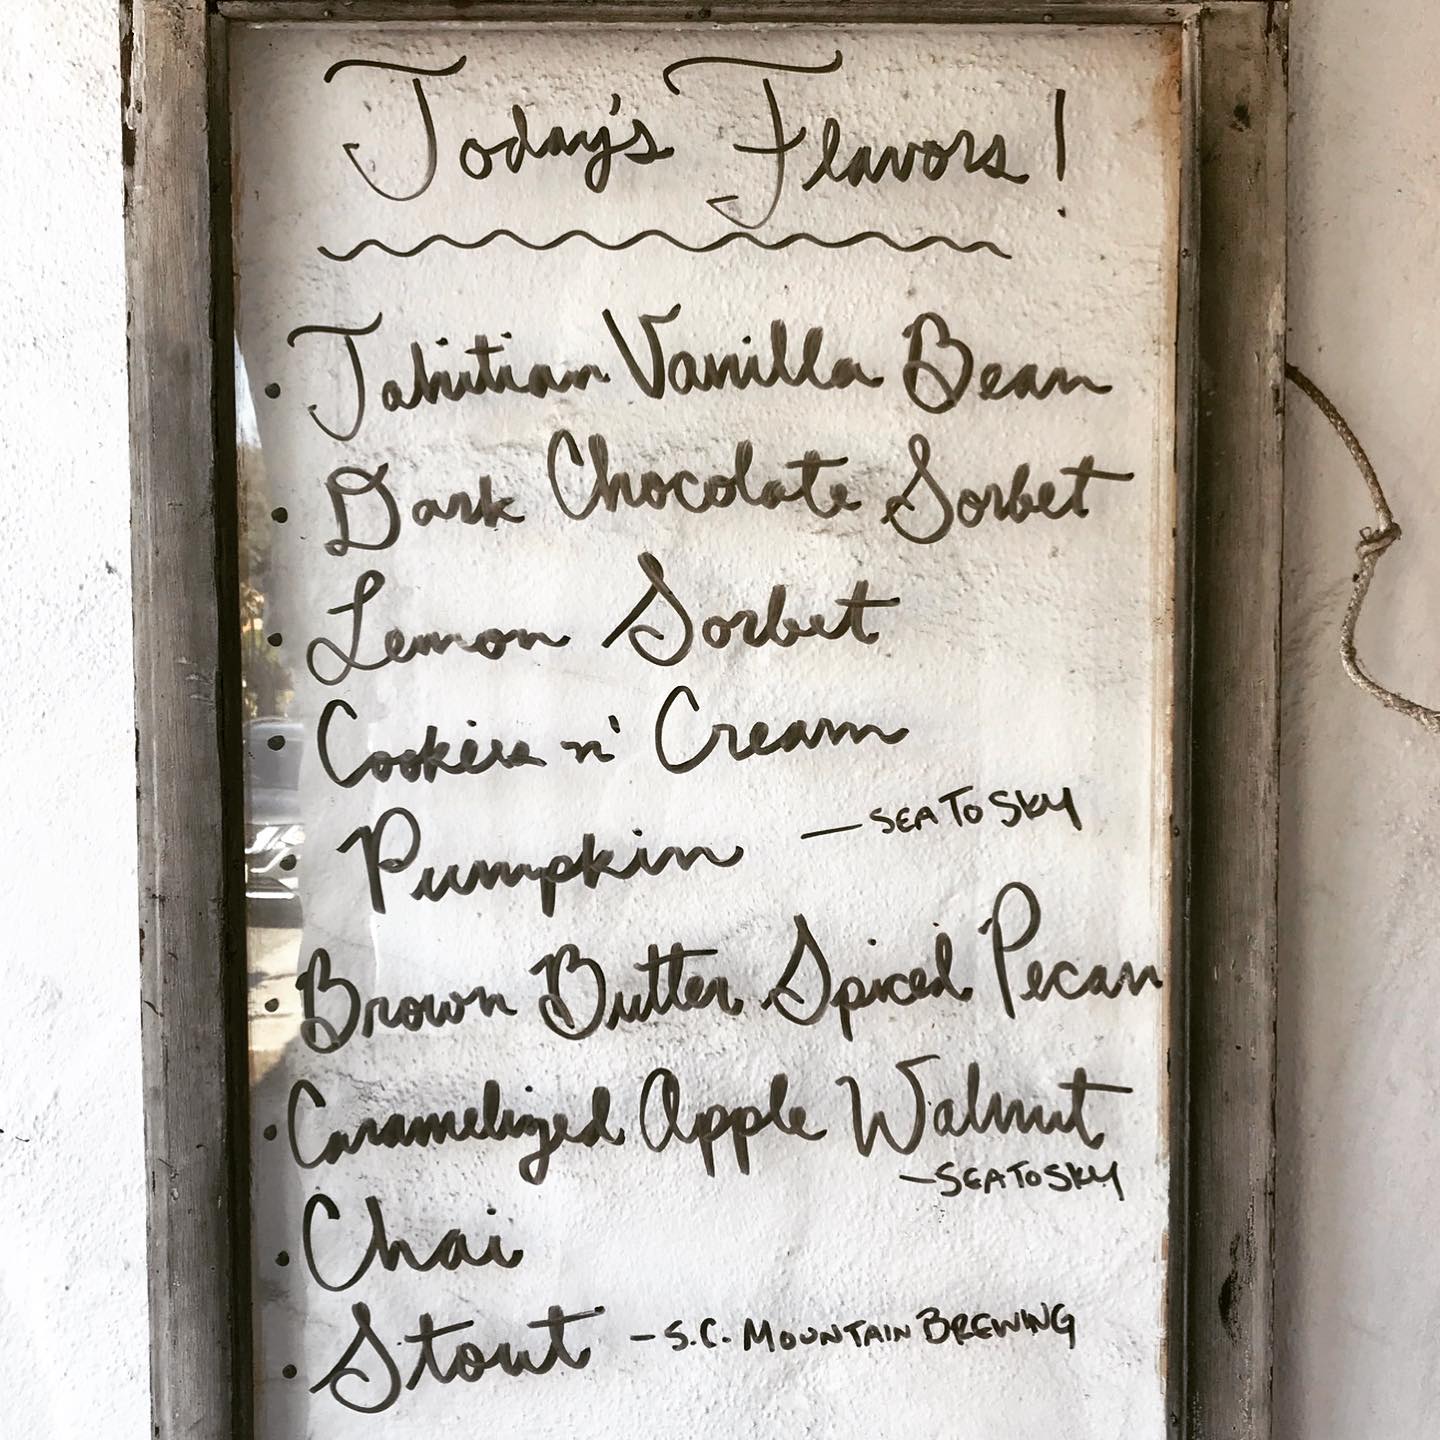 Today's Flavors!
• Tahitian Vanilla Bean
• Dark Chocolate Sorbet
• Lemon Sorbet
• Cookies n' Cream
• Pumpkin — SEA TO SKY
• Brown Butter Spiced Pecan
• Caramelized Apple Walnut
— SEA TO SKY
• Chai
• Stout — S.C. MOUNTAIN BREWING